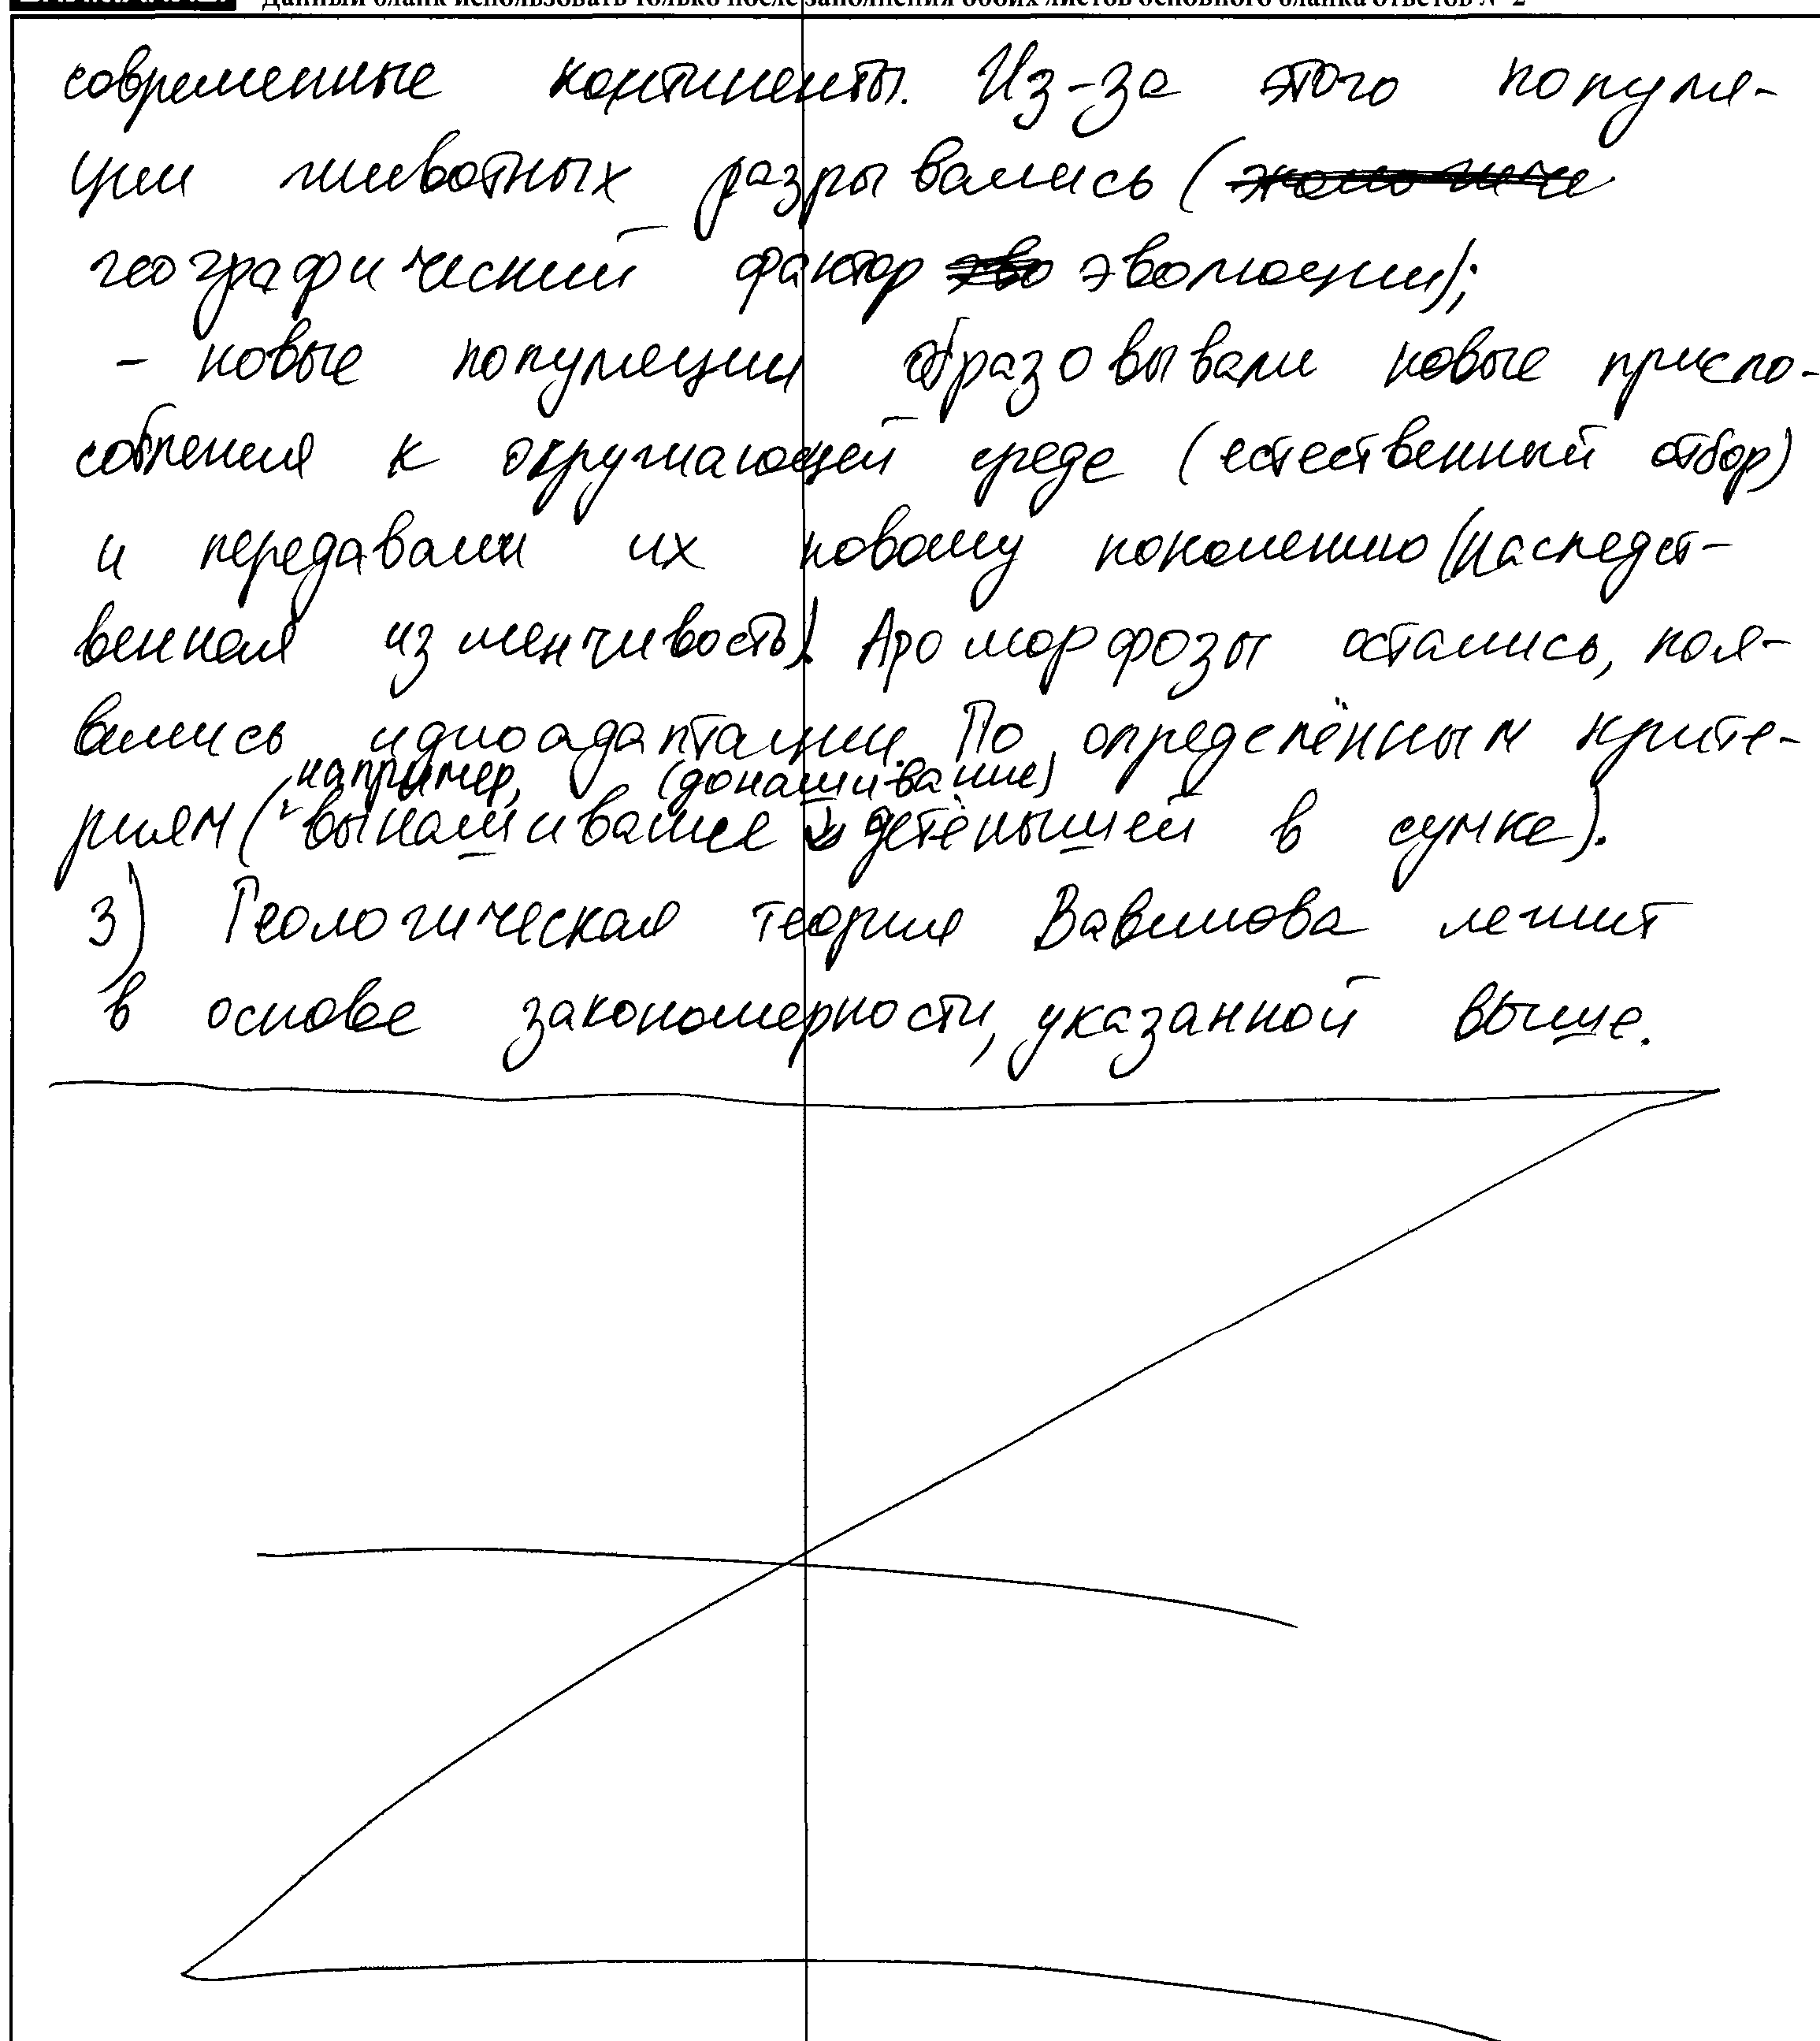 Данный бланк использовать только после заполнения обоих листов основного бланка ответов № 2
современные континенты. Из-за этого популя-
ции животных разрывались (
географический фактор эволюции);
- новые популяции образовывали новые приспо-
собления к окружающей среде (естественный отбор)
и передавали их новому поколению (наследст-
венная изменчивость). Ароморфозы остались, поя-
вились идиоадаптации. По определённым крите-
например, (донашивание)
риям (вынашивание детёнышей в сумке).
3) Геологическая теория Вавилова лежит
в основе закономерности, указанной выше.